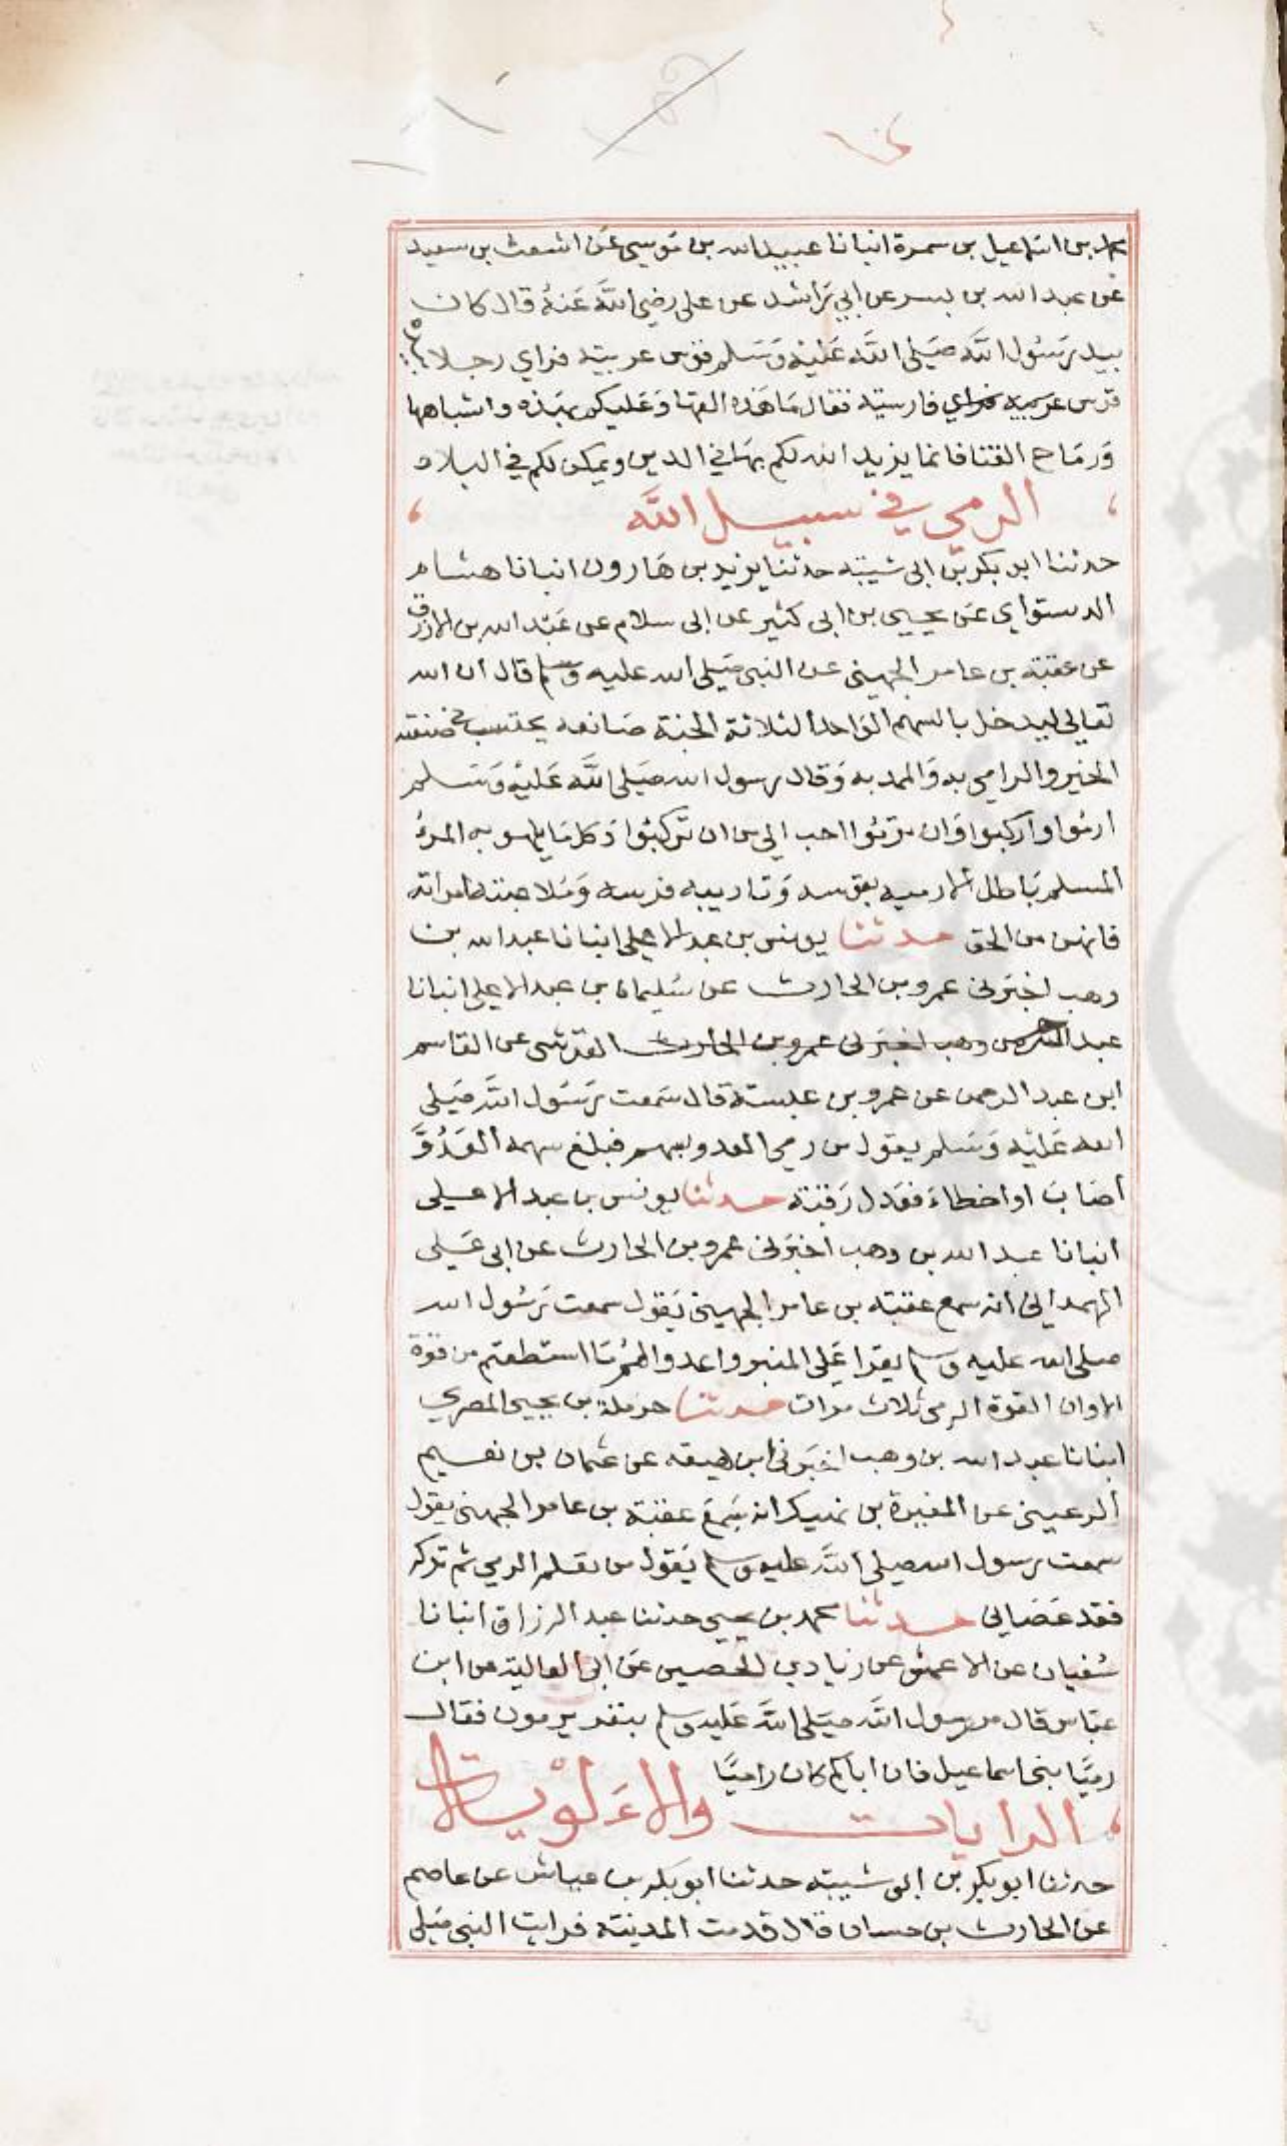 محمد بن اسماعيل بن سمرة انبانا عبيد الله بن موسى عن اشعث بن سعيد
عن عبد الله بن بسر عن ابي راشد عن علي رضي الله عنه قال كان
بيد رسول الله صلى الله عليه وسلم قوس عربية فراي رجلا
قوس عربية فراي فارسية فقال ما هذه القها وعليكم بهذه واشباهها
ورماح القنا فانما يزيد الله لكم بها في الدين ويمكن لكم في البلاد
الرمي في سبيل الله
حدثنا ابو بكر بن ابي شيبة حدثنا يزيد بن هارون انبانا هشام
الدستواي عن يحيي بن ابي كثير عن ابي سلام عن عبد الله بن الازرق
عن عقبة بن عامر الجهيني عن النبي صلى الله عليه وسلم قال ان الله
تعالى ليدخل بالسهم الواحد الثلاثة الجنة صانعه يحتسب في صنعته
الخير والرامي به والممد به وقال رسول الله صلى الله عليه وسلم
ارموا واركبوا وان ترموا احب الي من ان تركبوا وكل ما يلهو به المرؤ
المسلم باطل الا رميه بقوسه وتاديبه فرسه وملاعبته امراته
فانهن من الحق حدثنا يونس بن عبد الاعلى انبانا عبد الله بن
وهب اخبرني عمرو بن الحارث عن سليمان بن عبد الاعلى انبانا
عبد الرحمن وهب اخبرني عمرو بن الحارث القرشي عن القاسم
ابن عبد الرحمن عن عمرو بن عبسة قال سمعت رسول الله صلى
الله عليه وسلم يقول من رمي العدو بسهم فبلغ سهمه العدو
اصاب او اخطاء فعدل رقبة حدثنا يونس بن عبد الاعلى
انبانا عبد الله بن وهب اخبرني عمرو بن الحارث عن ابي علي
الهمداني انه سمع عقبة بن عامر الجهيني يقول سمعت رسول الله
صلى الله عليه وسلم يقرا على المنبر واعدوا لهم ما استطعتم من قوة
الا وان القوة الرمي ثلاث مرات حدثنا حرملة بن يحيى المصري
انبانا عبد الله بن وهب اخبرني ابن لهيعه عن عثمان بن نعيم
الرعيني عن المغيرة بن نهيك انه سمع عقبة بن عامر الجهني يقول
سمعت رسول الله صلى الله عليه وسلم يقول من تعلم الرمي ثم تركه
فقد عصاني حدثنا محمد بن يحيى حدثنا عبد الرزاق انبانا
سفيان عن الاعمش عن زياد بن الحصين عن ابي العالية عن ابن
عباس قال مر رسول الله صلى الله عليه وسلم بنفر يرمون فقال
رميا بني اسماعيل فان اباكم كان راميا
الرايات والالوية
حدثنا ابو بكر بن ابي شيبة حدثنا ابو بكر بن عياش عن عاصم
عن الحارث بن حسان قال قدمت المدينة فرايت النبي صلى